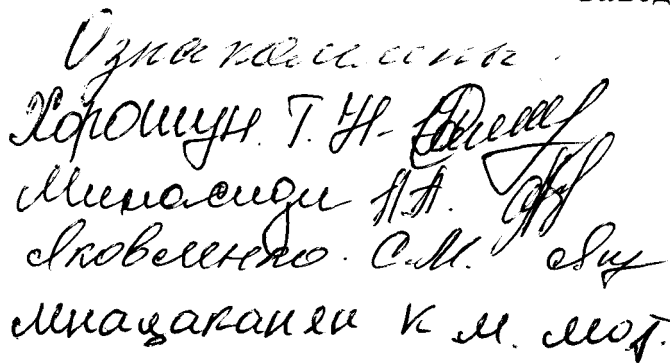 Ознакомлены:
Хорошун Т. Н-
Миносиди Н.А.
Яковленко. С.М.
Мнацаканян К М.